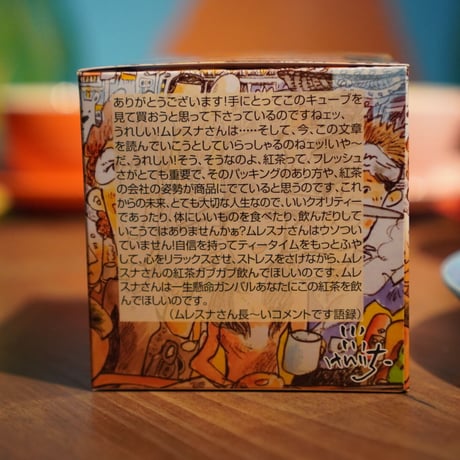 ありがとうございます!手にとってこのキューブを
見て買おうと思って下さっているのですねェッ、
うれしい!ムレスナさんは……そして、今、この文章
を読んでいこうとしていらっしゃるのねェッ!いやー
だ、うれしい!そう、そうなのよ、紅茶って、フレッシュ
さがとても重要で、そのパッキングのあり方や、紅茶
の会社の姿勢が商品にでていると思うのです、これ
からの未来、とても大切な人生なので、いいクオリティー
であったり、体にいいものを食べたり、飲んだりして
いこうではありませんかぁ?ムレスナさんはウソつい
ていません!自信を持ってティータイムをもっとふや
して、心をリラックスさせ、ストレスをさけながら、ムレ
スナさんの紅茶ガブガブ飲んでほしいのです、ムレ
スナさんは一生懸命ガンバルあなたにこの紅茶を飲
んでほしいのです。
(ムレスナさん長〜いコメントです語録)